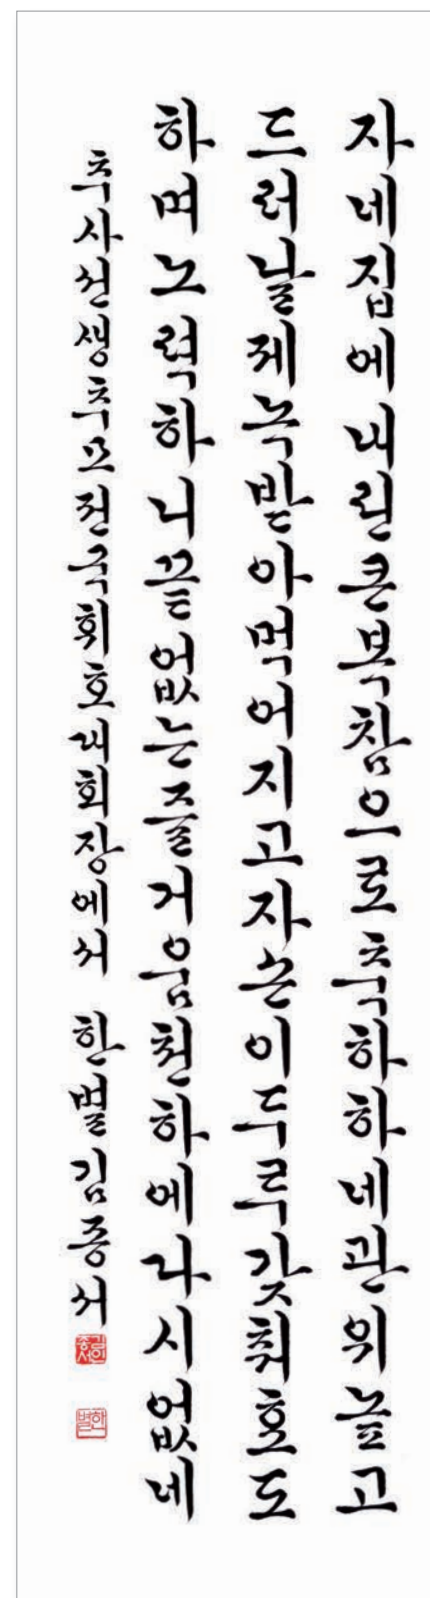 자네집에내린큰복참으로축하하네관위높고
드러날제녹받아먹어지고자손이두루갖춰효도
하며노력하니끝없는즐거움천하에다시없네
추사선생추모전국휘호대회장에서 한별김종서
한별